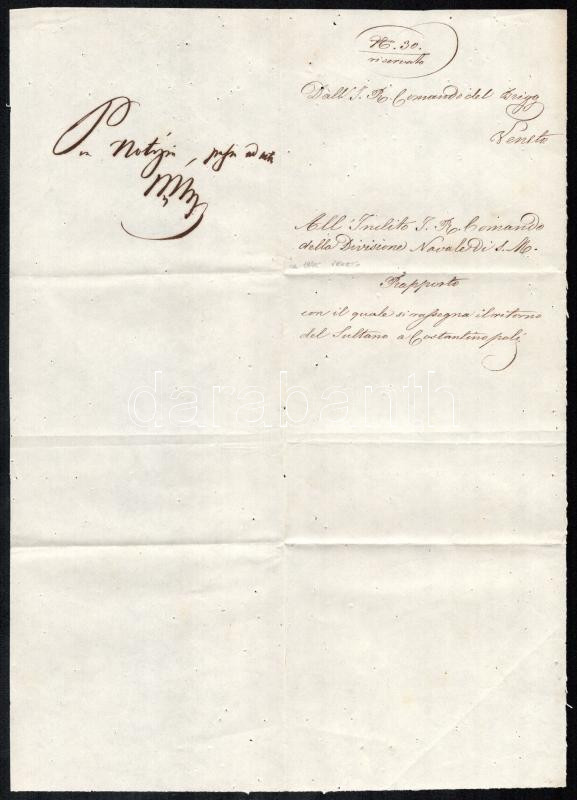 No. 30.
riservato
Dall' I. R. Comando del Brigg
Veneto
Per Notizia, passi ad acta
All' Inclito I. R. Comando
della Divisione Navale di S. M.
Rapporto
con il quale si rassegna il ritorno
del Sultano a Costantinopoli
darabanth